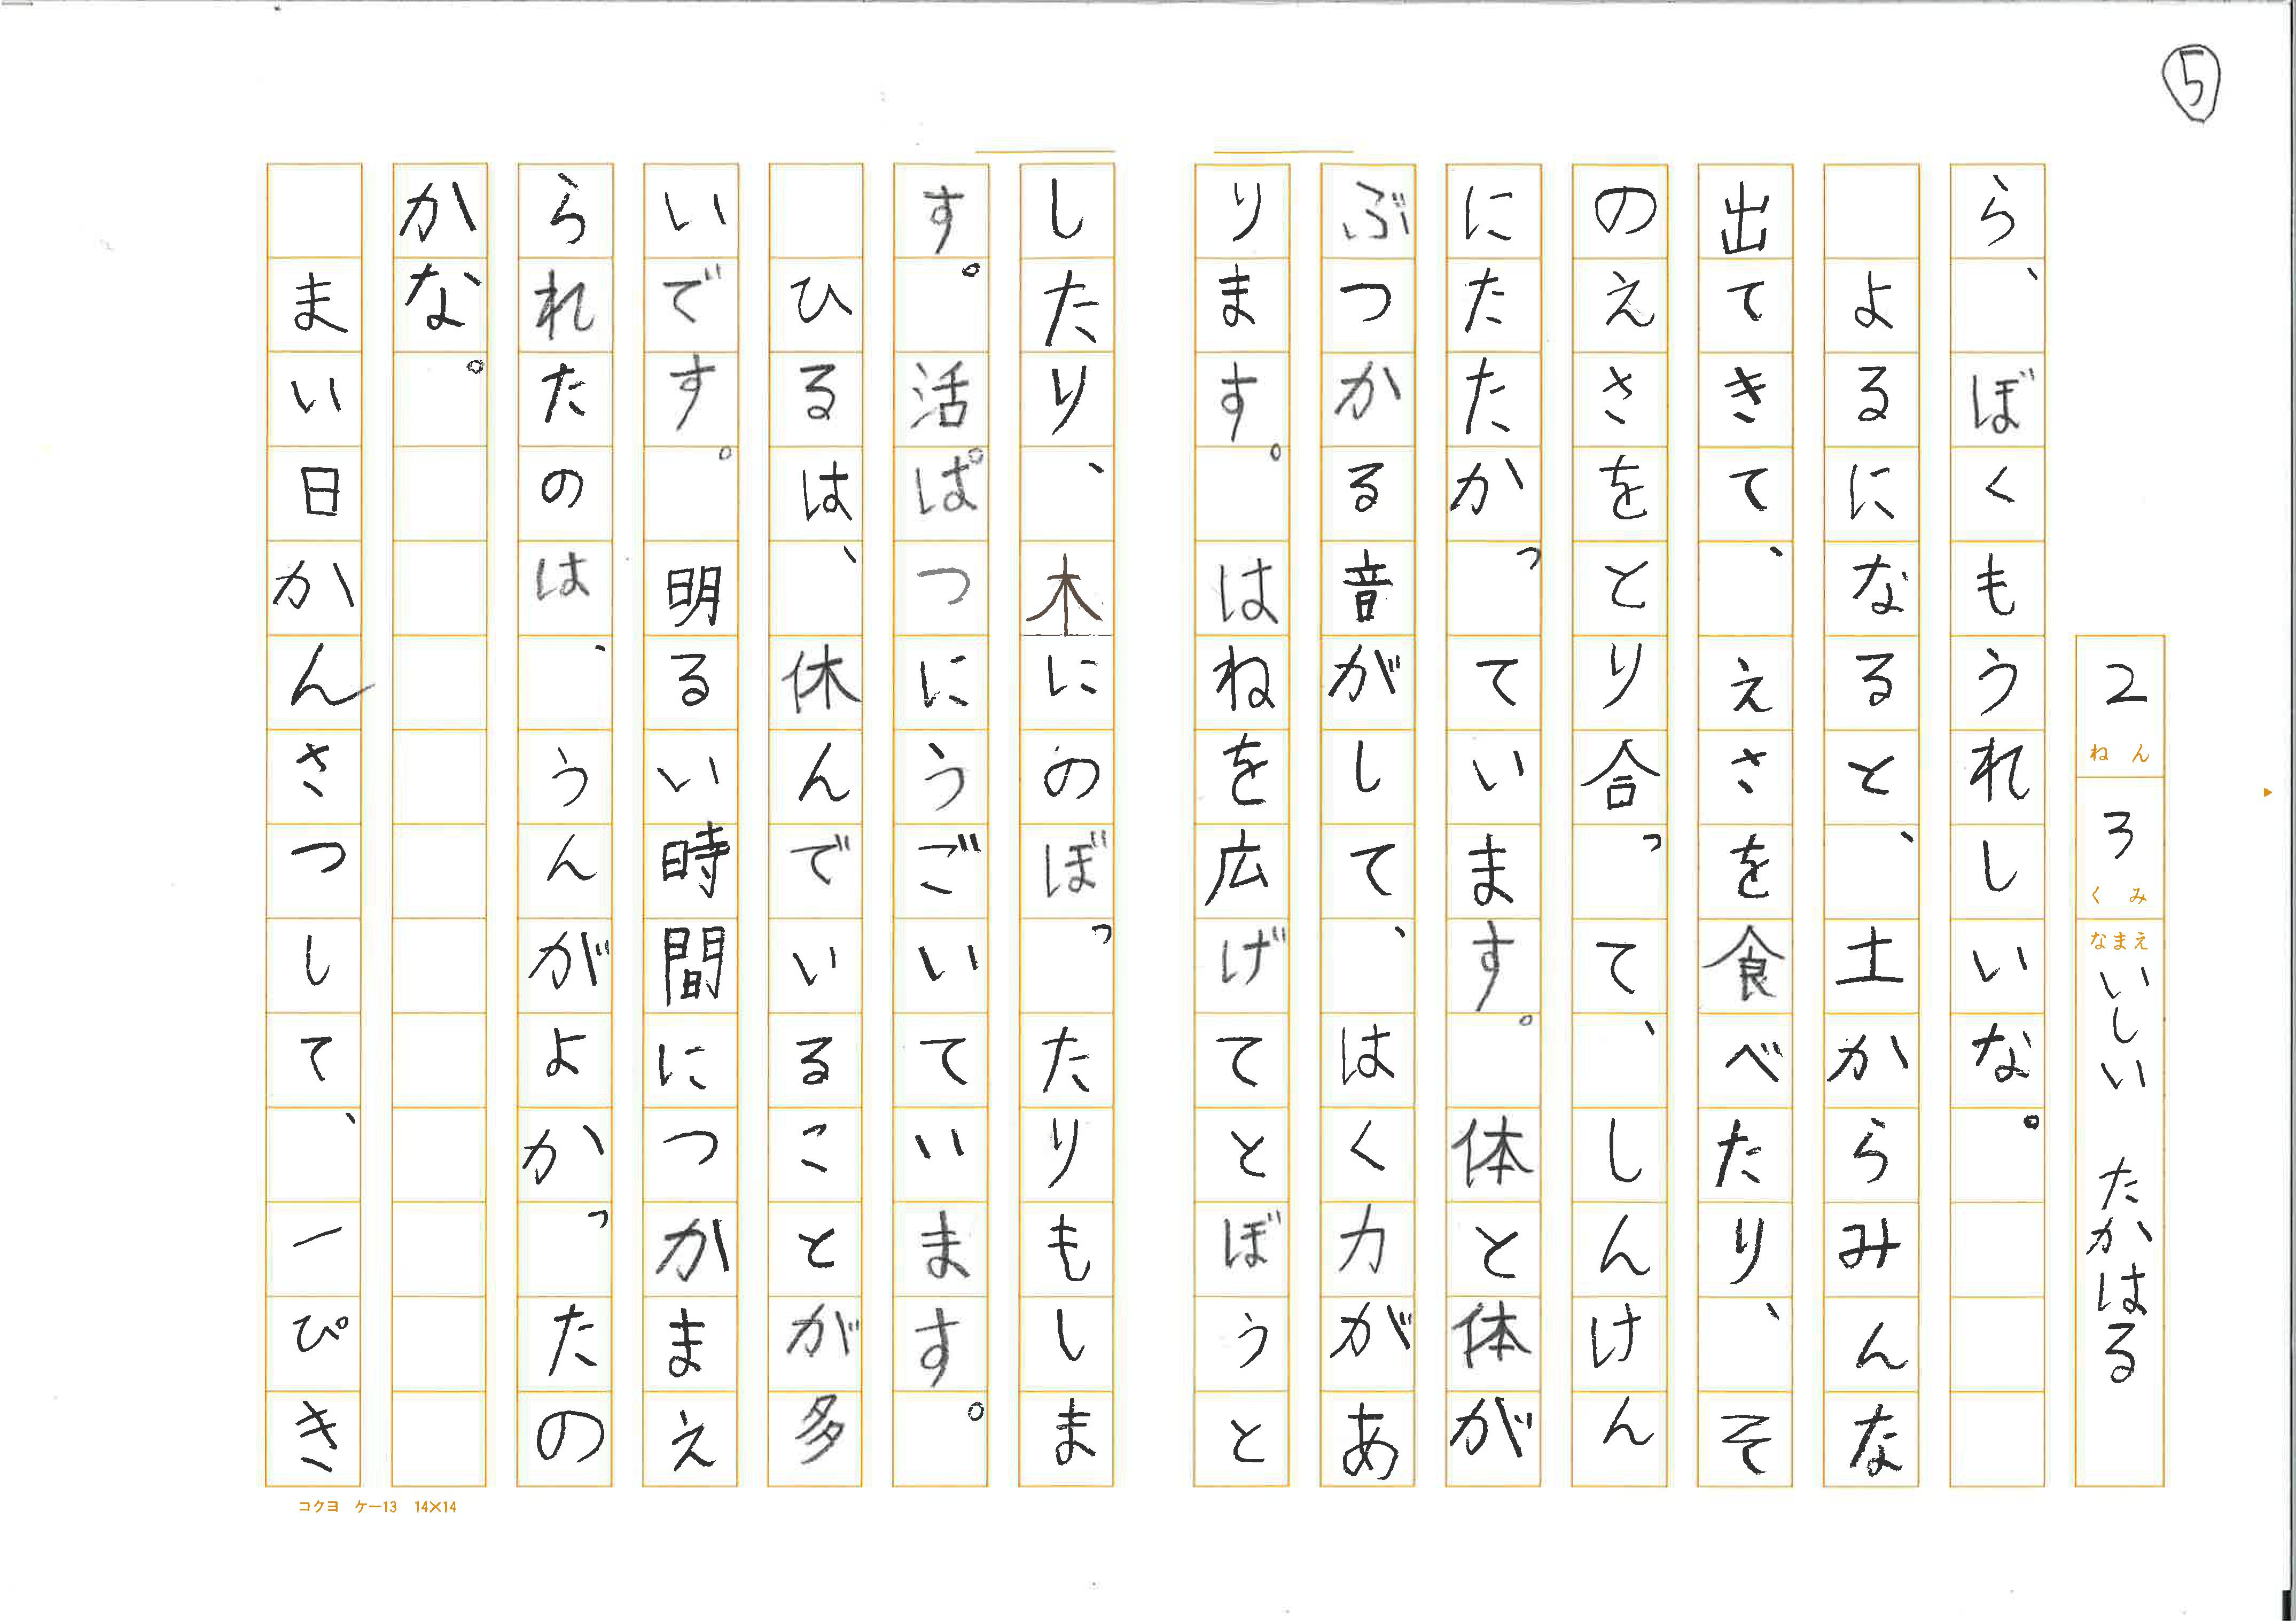 ⑤
2ねん 3くみ なまえ いしい たかはる
ら、ぼくもうれしいな。
よるになると、土からみんな
出てきて、えさを食べたり、そ
のえさをとり合って、しんけん
にたたかっています。体と体が
ぶつかる音がして、はく力があ
ります。はねを広げてとぼうと
したり、木にのぼったりもしま
す。活ぱつにうごいています。
ひるは、休んでいることが多
いです。明るい時間につかまえ
られたのは、うんがよかったの
かな。
まい日かんさつして、一ぴき
コクヨ ケー13 14×14